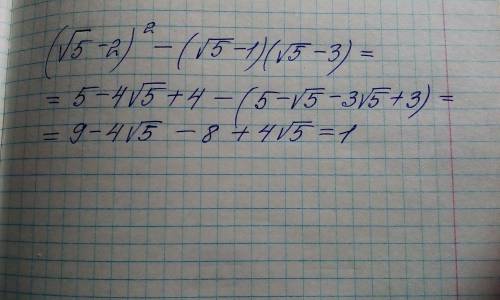 (√5-2)² - (√5-1)(√5-3) =
= 5-4√5+4 - (5-√5-3√5+3) =
= 9-4√5 - 8 + 4√5 = 1